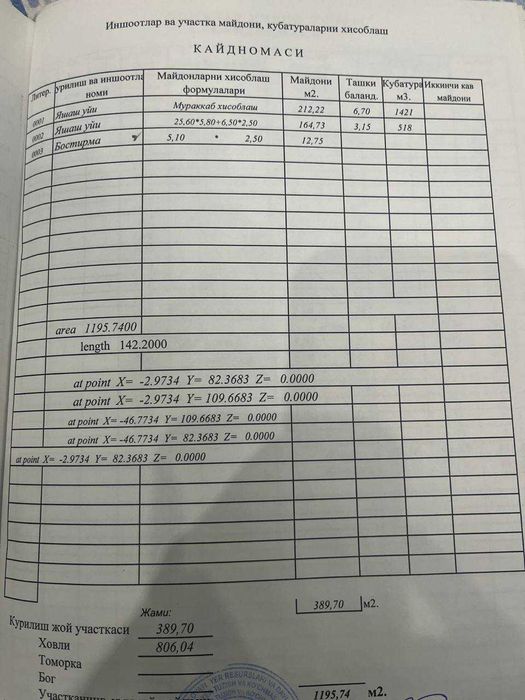 Иншоотлар ва участка майдони, кубатураларни хисоблаш
КАЙДНОМАСИ
Литер. урилиш ва иншоотла номи Майдонларни хисоблаш формулалари Майдони м2. Ташки баланд. Кубатура м3. Иккинчи кав майдони
0001 Яшаш уйи Мураккаб хисоблаш 212,22 6,70 1421
0002 Яшаш уйи 25,60*5,80+6,50*2,50 164,73 3,15 518
0003 Бостирма 5,10 * 2,50 12,75
area 1195.7400
length 142.2000
at point X= -2.9734 Y= 82.3683 Z= 0.0000
at point X= -2.9734 Y= 109.6683 Z= 0.0000
at point X= -46.7734 Y= 109.6683 Z= 0.0000
at point X= -46.7734 Y= 82.3683 Z= 0.0000
at point X= -2.9734 Y= 82.3683 Z= 0.0000
Жами: 389,70 м2.
Курилиш жой участкаси 389,70
Ховли 806,04
Томорка
Бог
1195,74 м2.